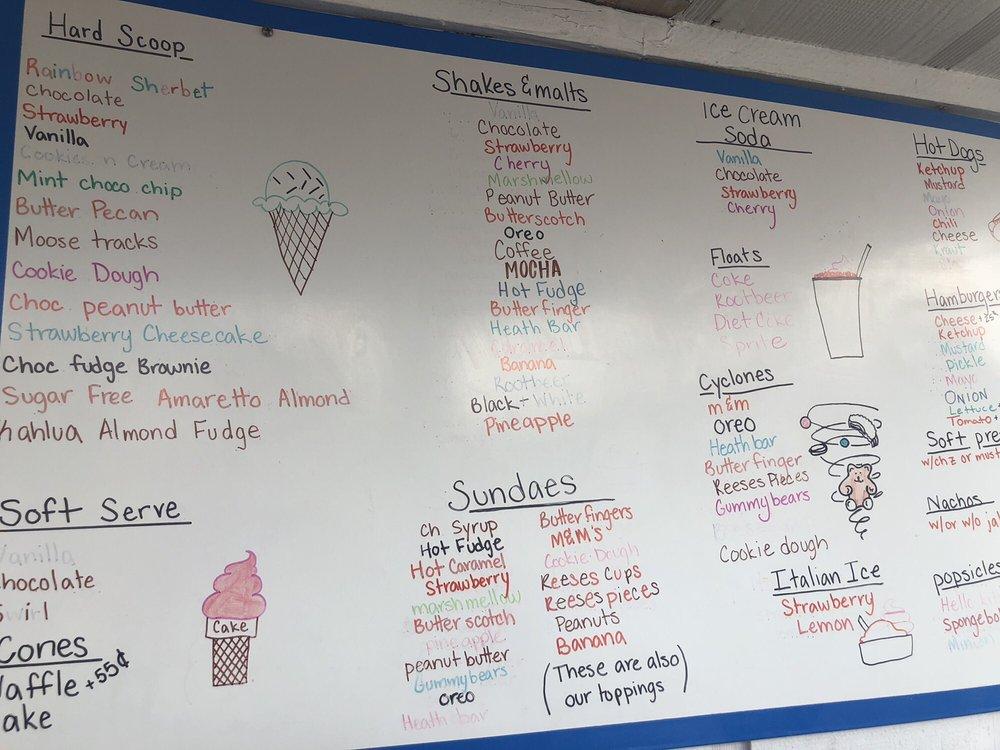 Hard Scoop
Rainbow Sherbet
Chocolate
Strawberry
Vanilla
Cookies n Cream
Mint choco chip
Butter Pecan
Moose tracks
Cookie Dough
Choc peanut butter
Strawberry Cheesecake
Choc fudge Brownie
Sugar Free Amaretto Almond
kahlua Almond Fudge
Soft Serve
Vanilla
chocolate
Swirl
Cones
Waffle +55¢
Cake
Cake
Shakes & malts
Vanilla
Chocolate
Strawberry
Cherry
Marshmellow
Peanut Butter
Butterscotch
Oreo
Coffee
MOCHA
Hot Fudge
Butterfinger
Heath Bar
Caramel
Banana
Rootbeer
Black + White
Pineapple
Sundaes
Ch Syrup
Hot Fudge
Hot Caramel
Strawberry
marshmellow
Butter scotch
pineapple
peanut butter
Gummybears
oreo
Heath bar
Butterfingers
M&M's
Cookie Dough
Reeses Cups
Reeses pieces
Peanuts
Banana
(These are also
our toppings)
Ice Cream
Soda
Vanilla
Chocolate
Strawberry
Cherry
Floats
Coke
Rootbeer
Diet Coke
Sprite
Cyclones
m&m
Oreo
Heath bar
Butterfinger
Reeses Pieces
Gummybears
Cookie dough
Italian Ice
Strawberry
Lemon
Hot Dogs
Ketchup
Mustard
Mayo
Onion
Chili
Cheese
Kraut
Hamburgers
Cheese +25
Ketchup
Mustard
pickle
Mayo
ONION
Lettuce +
Tomato +
Soft pre
w/chz or must
Nachos
w/or w/o ja
popsicles
Hello
Spongebo
Minion